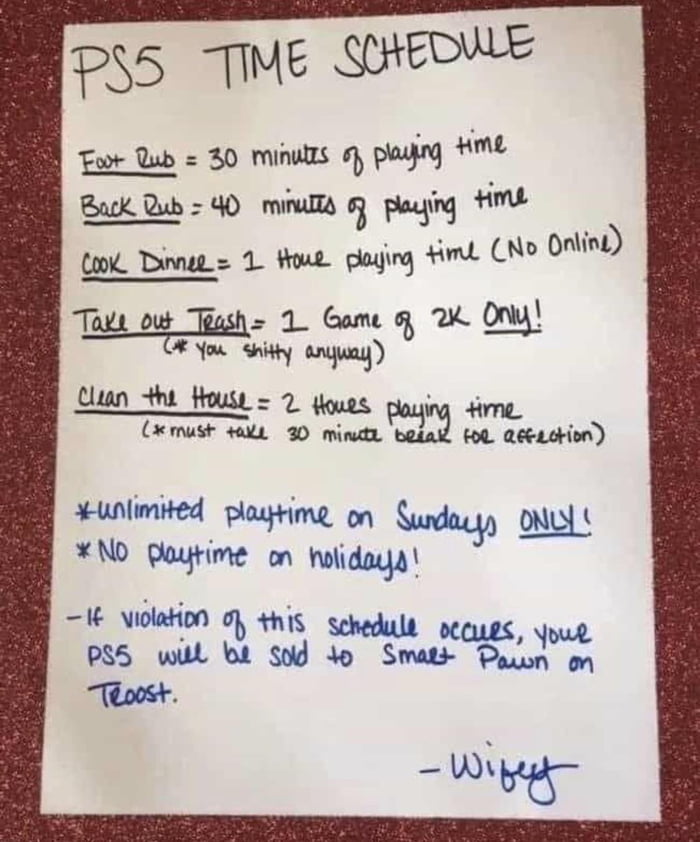 PS5 TIME SCHEDULE
Foot Rub = 30 minutes of playing time
Back Rub = 40 minutes of playing time
Cook Dinner = 1 Hour playing time (No Online)
Take out Trash = 1 Game of 2K Only!
(* you shitty anyway)
Clean the House = 2 Hours playing time
(* must take 30 minute break for affection)
*unlimited playtime on Sundays ONLY!
* No playtime on holidays!
- If violation of this schedule occurs, your
PS5 will be sold to Smart Pawn on
Troost.
- Wifey